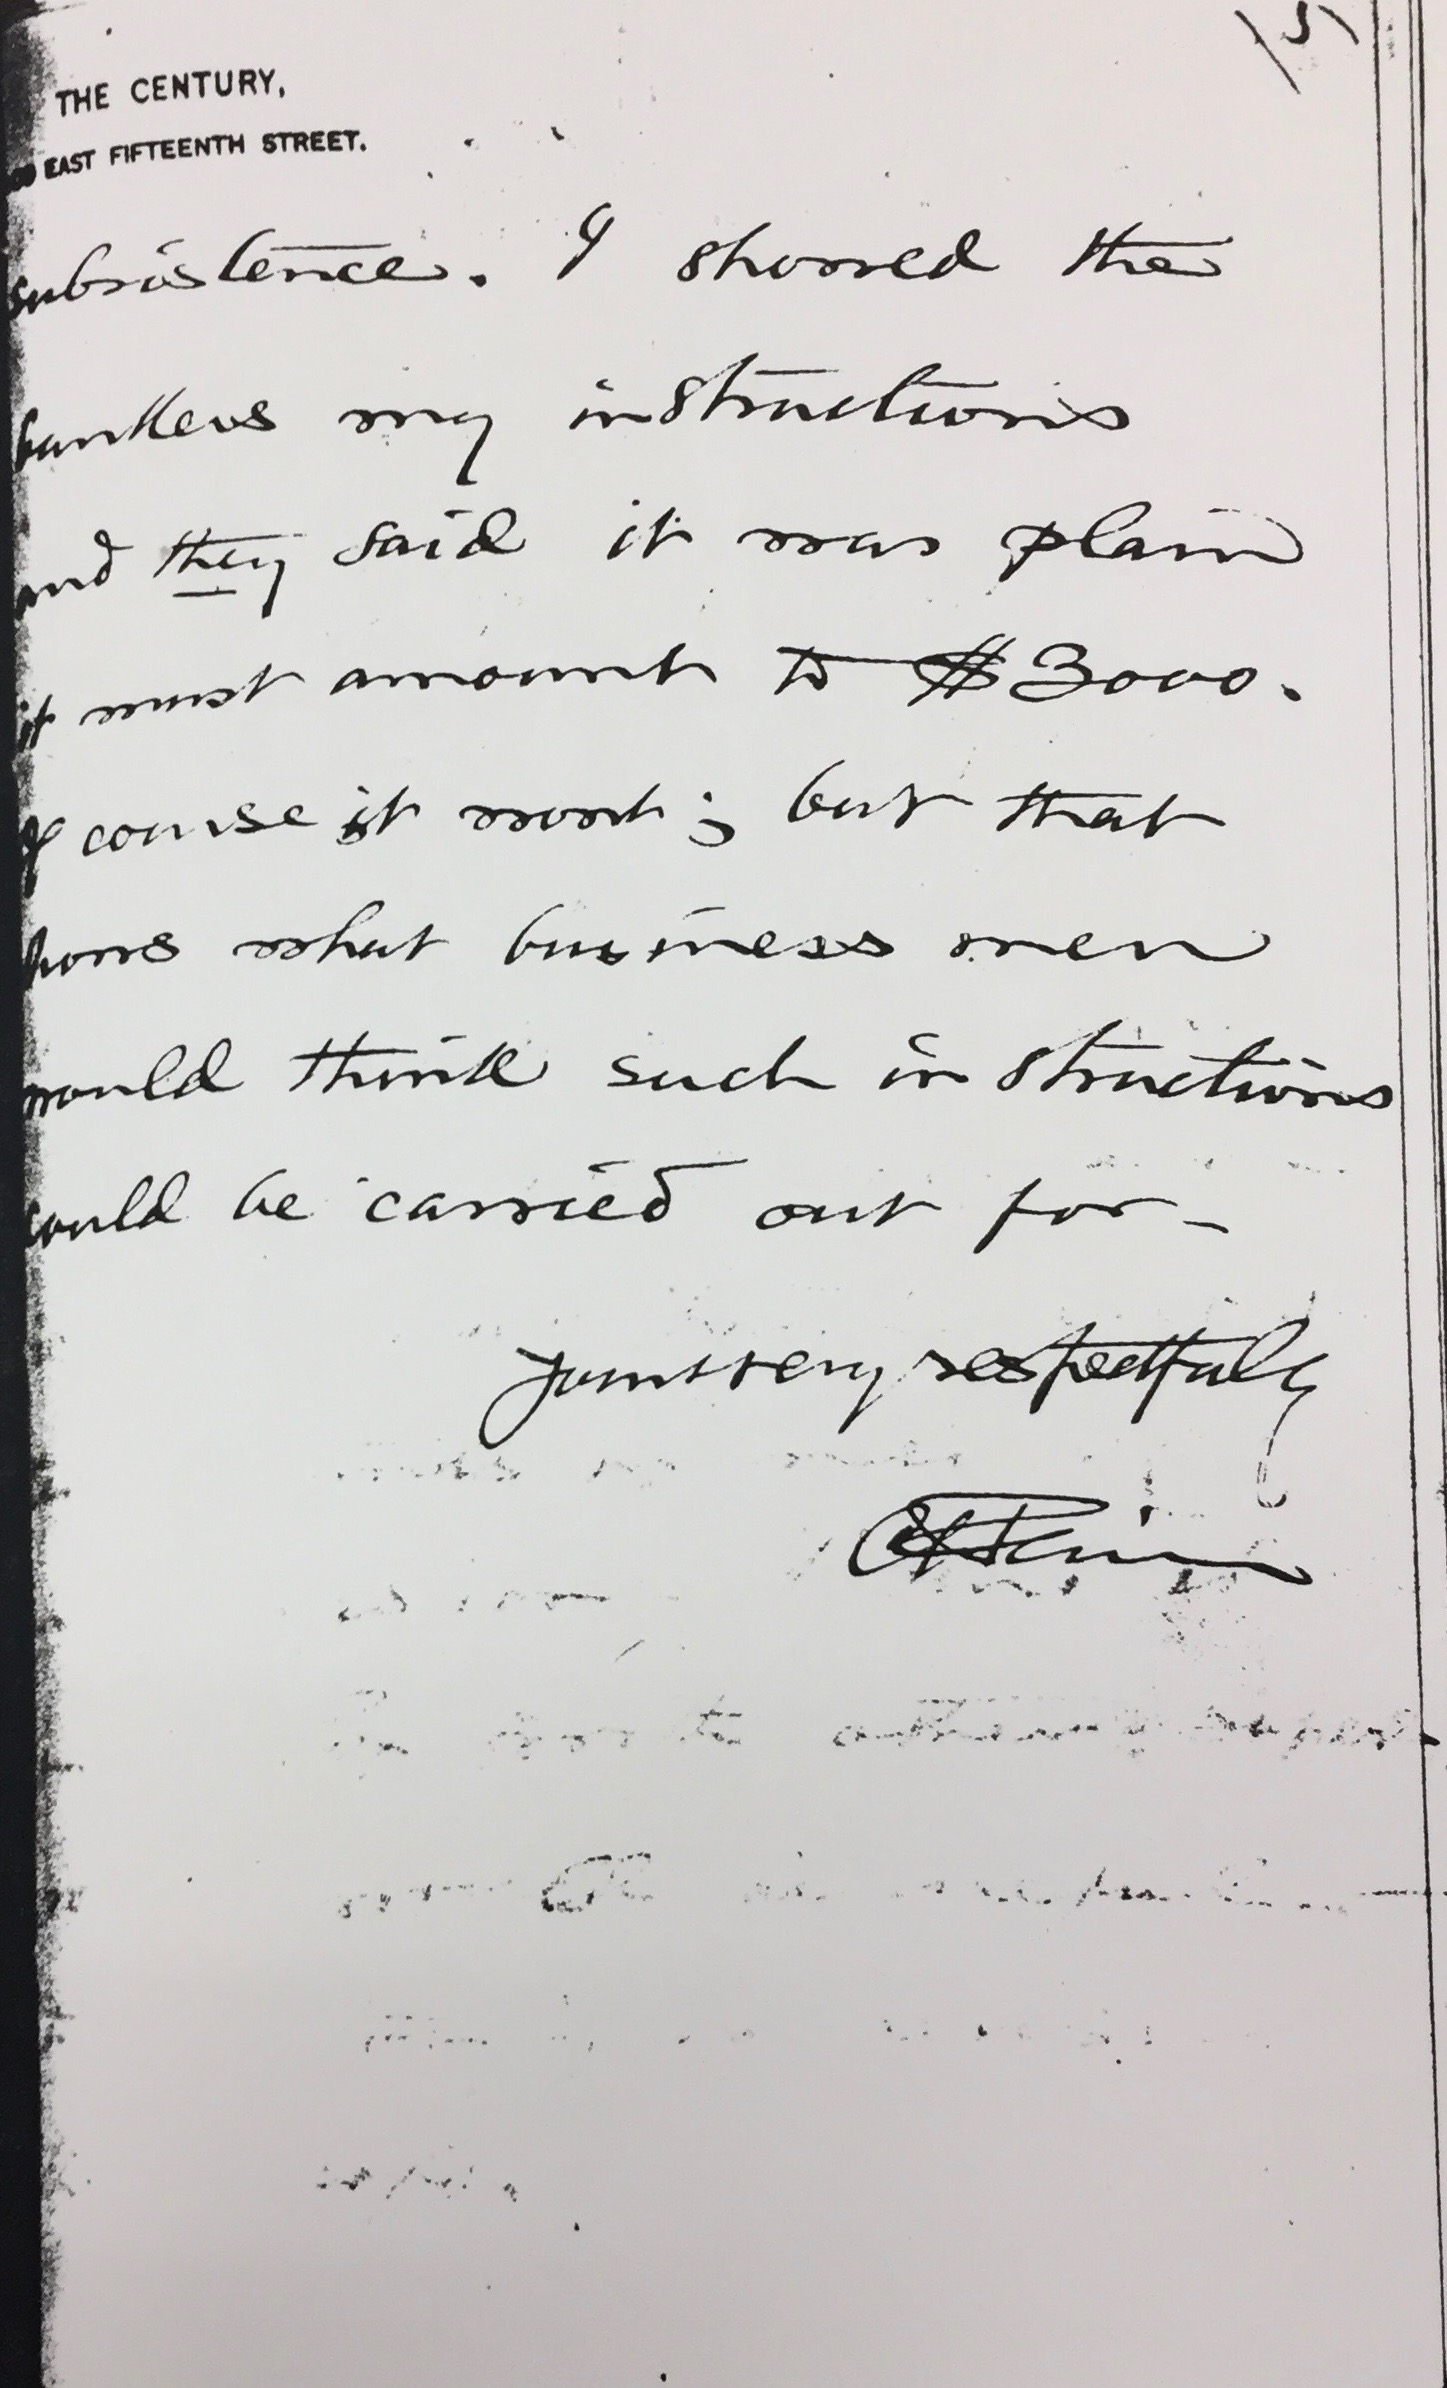 THE CENTURY,
EAST FIFTEENTH STREET.
subsistence. I showed the
bankers my instructions
and they said it was plain
it must amount to $3000.
Of course it wont; but that
shows what business men
would think such instructions
could be carried out for—
Yours very respectfully
CSPeirce